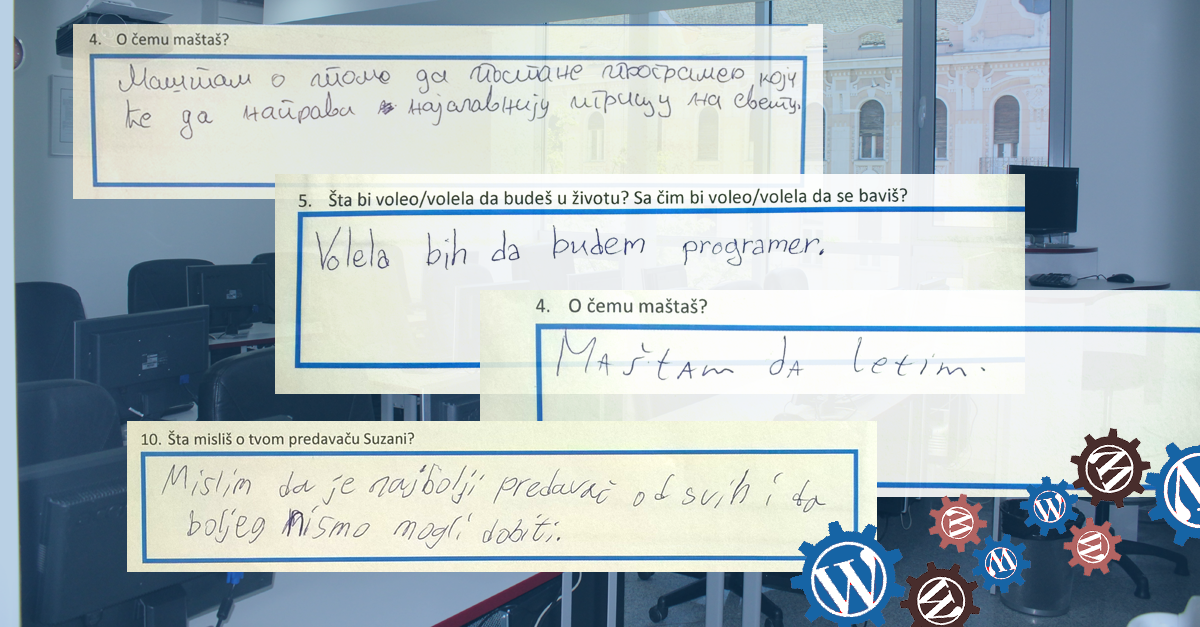 4. O čemu maštaš?
Маштам о томе да постане програмер који
ће да направи најславнију игрицу на свету.
5. Šta bi voleo/volela da budeš u životu? Sa čim bi voleo/volela da se baviš?
Volela bih da budem programer.
4. O čemu maštaš?
Maštam da letim.
10. Šta misliš o tvom predavaču Suzani?
Mislim da je najbolji predavač od svih i da
boljeg nismo mogli dobiti.